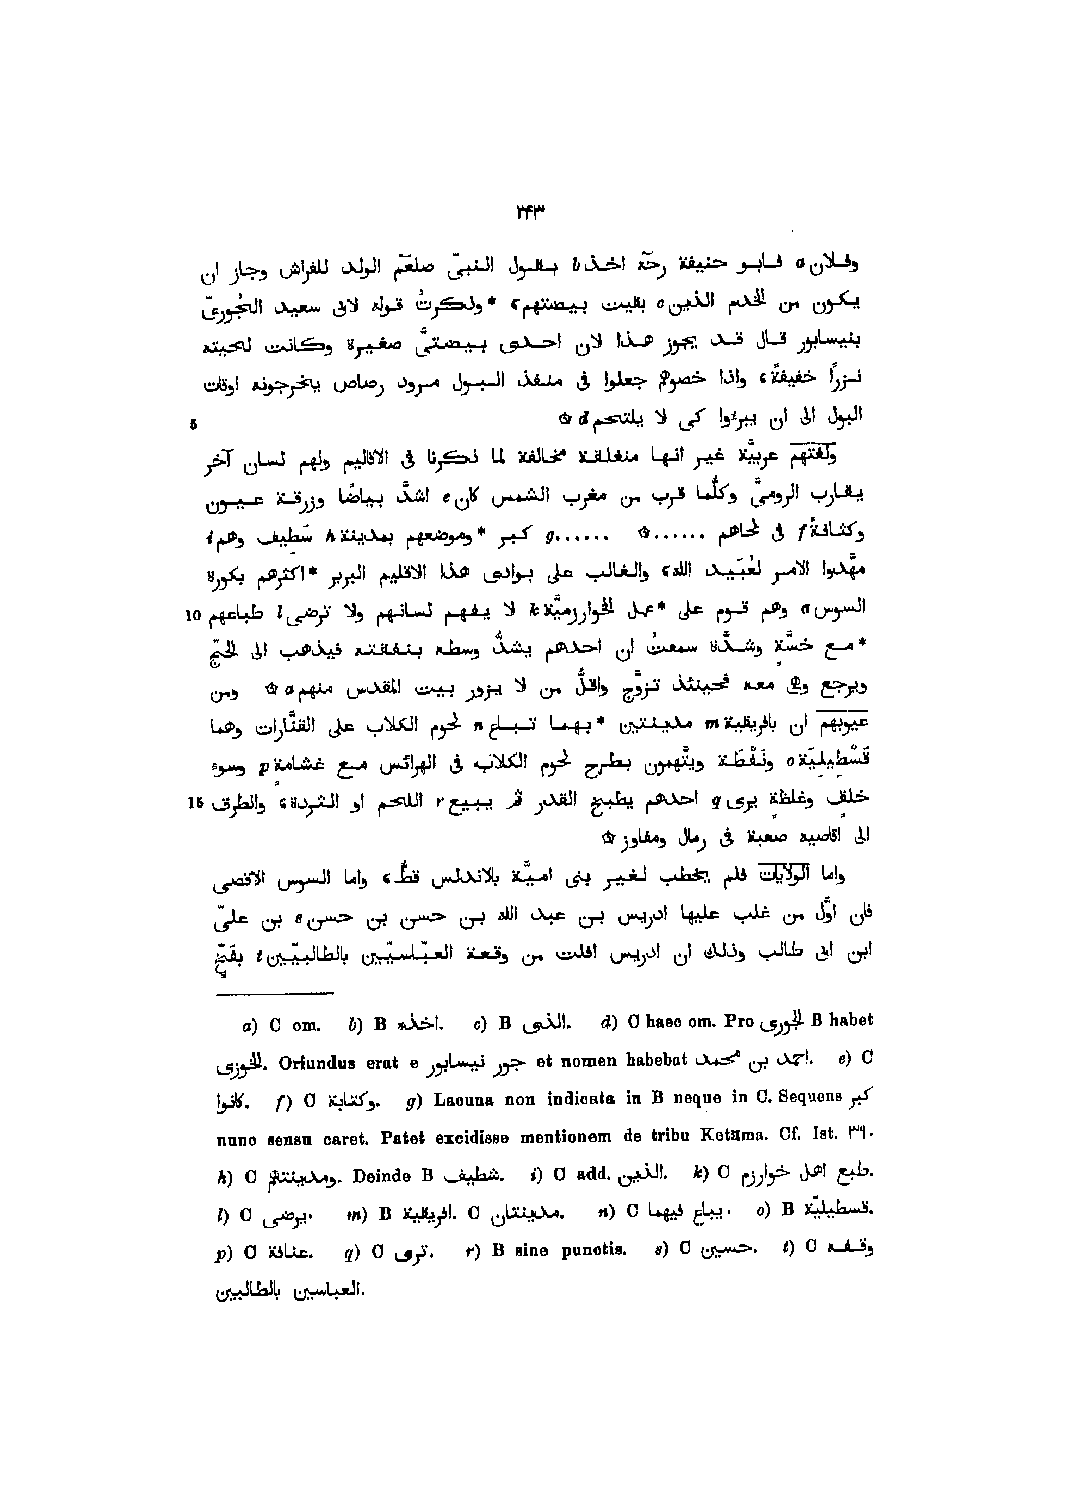 ٢٤٣
وفلان a فابو حنيفة رحّه اخذ b بقول النبىّ صلعّم الولد للفراش وجاز ان
يكون من الخدم الذين c بقيت بيضتهم ء *وذكرتُ قوله لابى سعيد الجُورىّ
بنيسابور قال قد يجوز هذا لان احدى بيضتىَّ صغيرة وكانت لحيته
نزرًا خفيفةً ء واذا خصوهم جعلوا فى منفذ البول مرود رصاص يخرجونه اوقات
5 البول الى ان يبرئوا كى لا يلتحم d ۞
ولغتهم عربيَّة غير انها منغلقة مخالفة لما ذكرنا فى الاقاليم ولهم لسان آخر
يقارب الرومىَّ وكلَّما قرب من مغرب الشمس كان e اشدَّ بياضًا وزرقة عيون
وكثافةً f فى لحاهم ...... ۞ ......g كبر *وموضعهم بمدينة h سَطيف وهم i
مهَّدوا الامر لعُبَيد الله ء والغالب على بوادى هذا الاقليم البربر *اكثرهم بكورة
10 السوس a وهم قوم على *عمل الخوارزميَّة k لا يفهم لسانهم ولا ترضى l طباعهم
*مع خسَّةٍ وشدَّة سمعتُ ان احدهم يشدُّ وسطه بنفقته فيذهب الى الحجّ
ويرجع وهى معه فحينئذ تزوَّج واقلُّ من لا يزور بيت المقدس منهم a ۞ ومن
عيوبهم ان بافريقية m مدينتين *بهما تباع n لحوم الكلاب على القنَّارات وهما
قَسْطيليَة o ونَفْطَة ويتَّهمون بطرح لحوم الكلاب فى الهرائس مع غشامة p وسوء
15 خلقٍ وغلظةٍ يرى q احدهم يطبخ القدر ثم يبيع r اللحم او الثردة ء والطرق
الى اقاصيه صعبة فى رمال ومفاوز ۞
واما الولايات فلم يخطب لغير بنى اميَّة بالاندلس قطُّ ء واما السوس الاقصى
فان اوَّل من غلب عليها ادريس بن عبد الله بن حسن بن حسن s بن علىّ
ابن ابى طالب وذلك ان ادريس افلت من وقعة العبّاسيّين بالطالبيّين t بفَخّ
a) C om. b) B اخذه. c) B الذى. d) C haec om. Pro الجورى B habet
الخوزى. Oriundus erat e جور نيسابور et nomen habebat احمد بن محمد. e) C
كانوا. f) C وكتابة. g) Lacuna non indicata in B neque in C. Sequens كبر
nunc sensu caret. Patet excidisse mentionem de tribu Ketâma. Cf. Ist. ٣٩.
h) C ومدينتهم. Deinde B شطيف. i) C add. الذين. k) C طبع اهل خوارزم.
l) C يرضى. m) B افريقية. C مدينتان. n) C يباع فيهما. o) B قسطيليّة.
p) C عتافة. q) C ترى. r) B sine punctis. s) C حسين. t) C وقفه
العباسين بالطالبين.